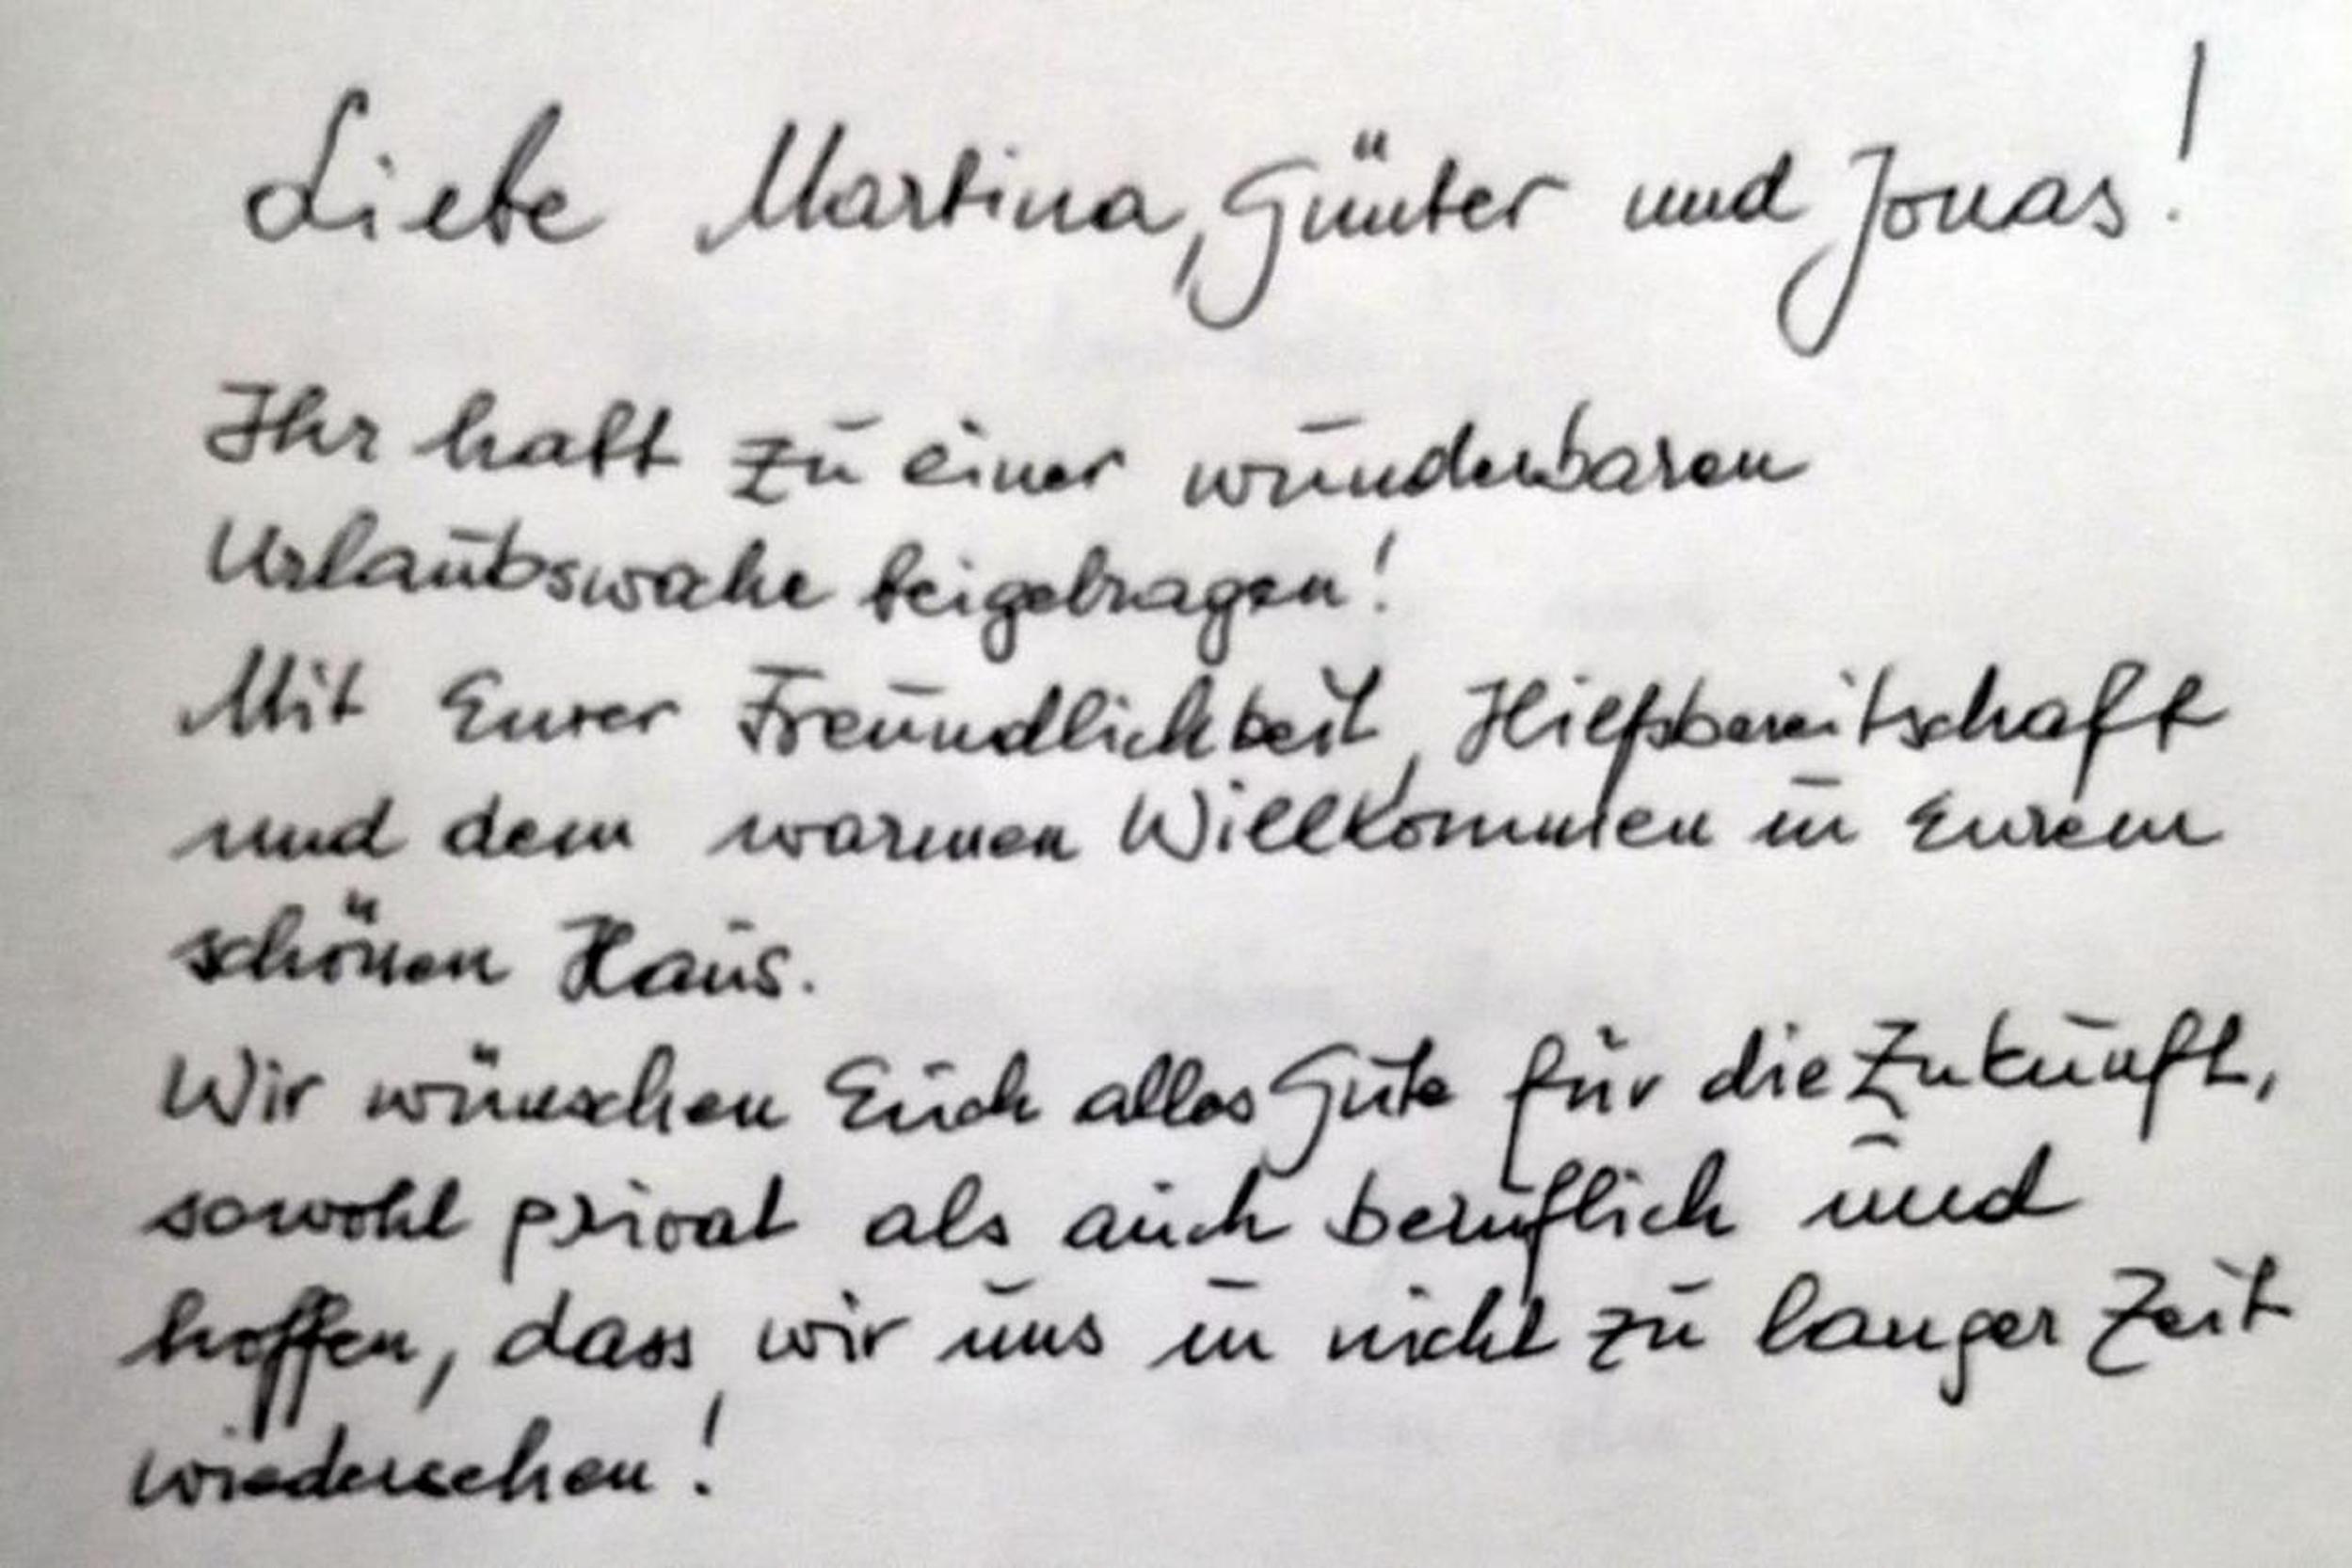 Liebe Martina, Günter und Jonas!
Ihr habt zu einer wunderbaren
Urlaubswoche beigetragen!
Mit Eurer Freundlichkeit, Hilfsbereitschaft
und dem warmen Willkommen in Eurem
schönen Haus.
Wir wünschen Euch alles Gute für die Zukunft,
sowohl privat als auch beruflich und
hoffen, dass wir uns in nicht zu langer Zeit
wiedersehen!